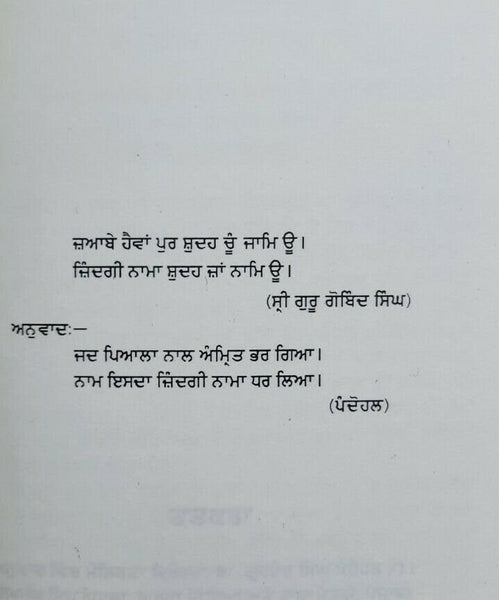 ਜ਼ਆਬੇ ਹੈਵਾਂ ਪੁਰ ਸ਼ੁਦਹ ਚੂੰ ਜਾਮਿ ਊ।
ਜ਼ਿੰਦਗੀ ਨਾਮਾ ਸ਼ੁਦਹ ਜ਼ਾਂ ਨਾਮਿ ਊ।
(ਸ੍ਰੀ ਗੁਰੂ ਗੋਬਿੰਦ ਸਿੰਘ)
ਅਨੁਵਾਦ:—
ਜਦ ਪਿਆਲਾ ਨਾਲ ਅੰਮ੍ਰਿਤ ਭਰ ਗਿਆ।
ਨਾਮ ਇਸਦਾ ਜ਼ਿੰਦਗੀ ਨਾਮਾ ਧਰ ਲਿਆ।
(ਪੰਦੋਹਲ)